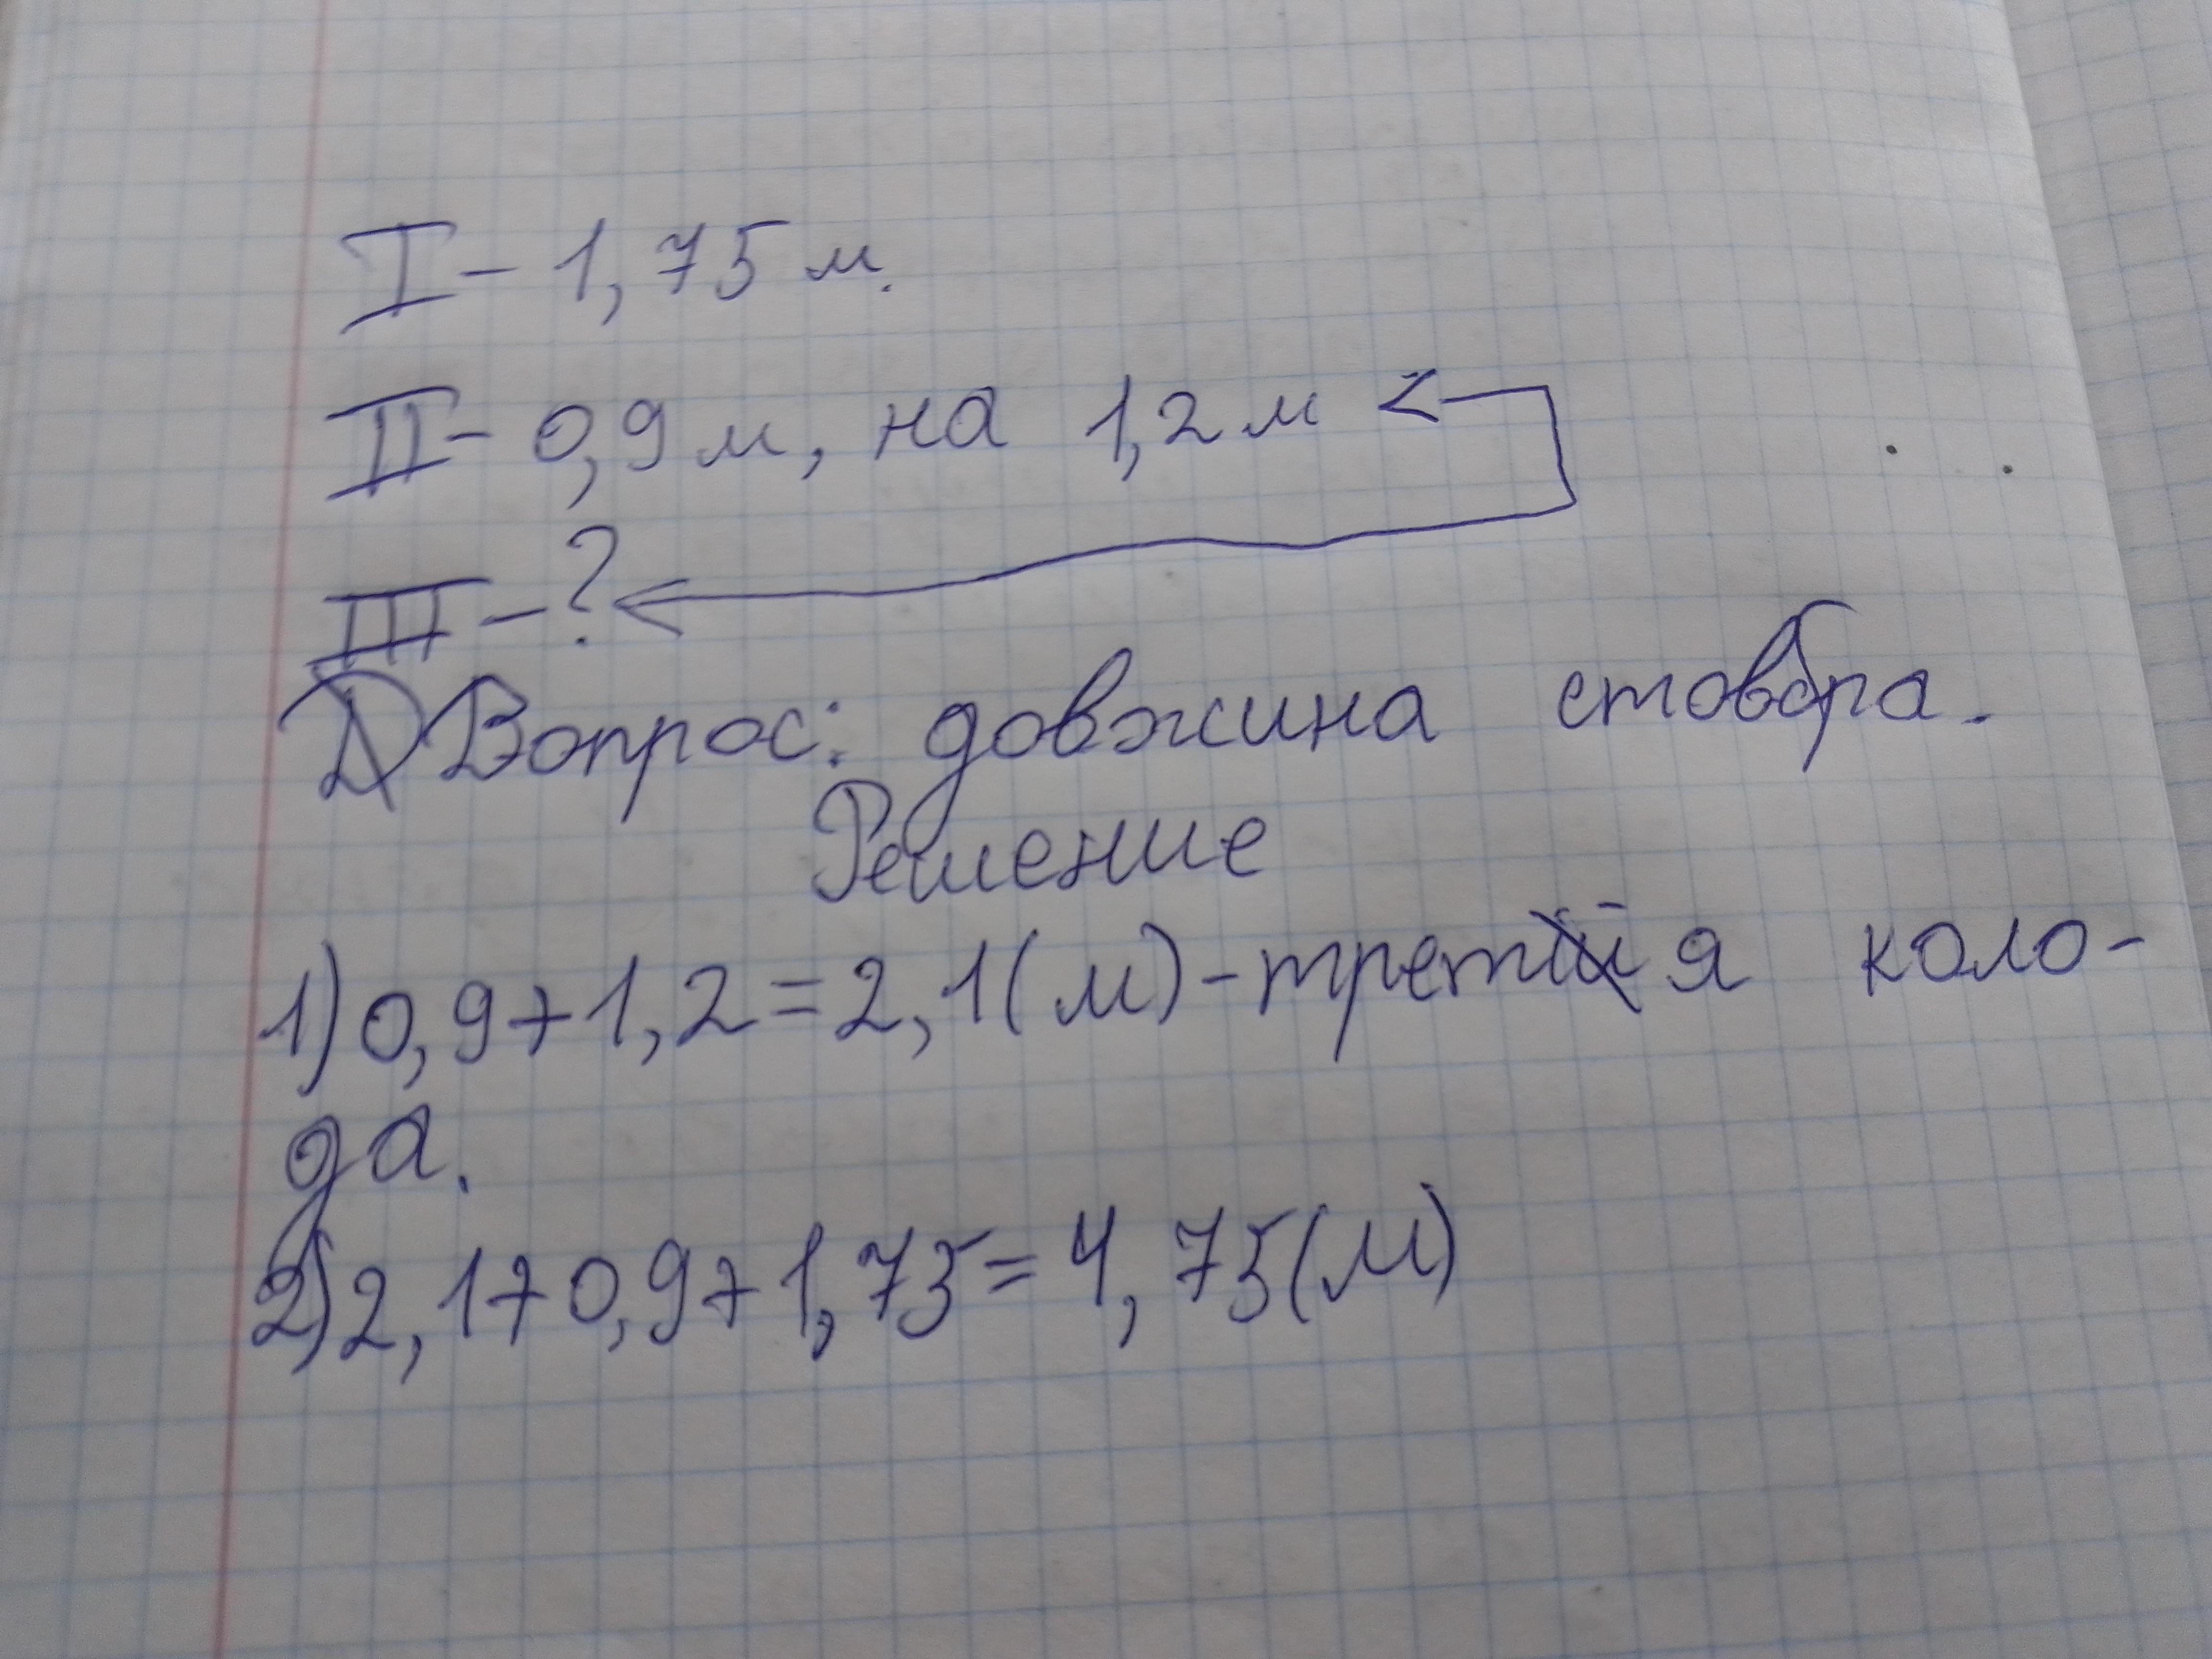 I - 1,75 м.
II - 0,9 м, на 1,2 м <
III - ?
Вопрос: довжина стовбра.
Решение
1) 0,9 + 1,2 = 2,1 (м) - третя коло-
да.
2) 2,1 + 0,9 + 1,75 = 4,75 (м)